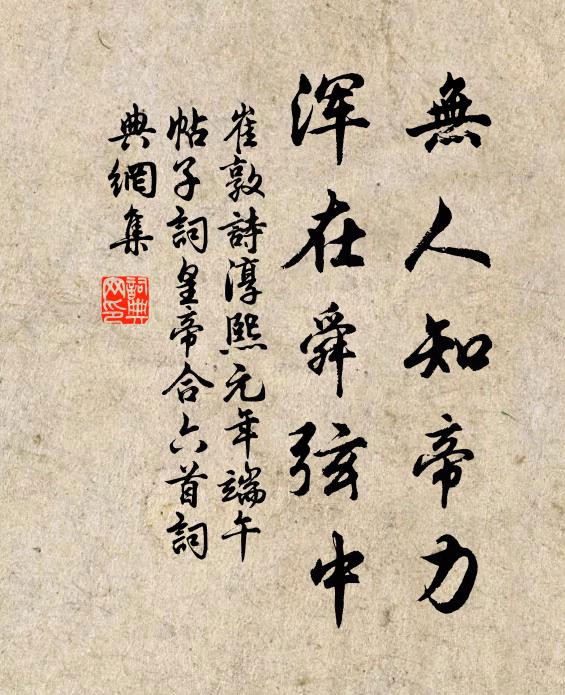 無人知帝力
浑在舜弦中
崔敦詩淳熙元年端午
帖子詞皇帝合六首詞
典網集
詞典
网印